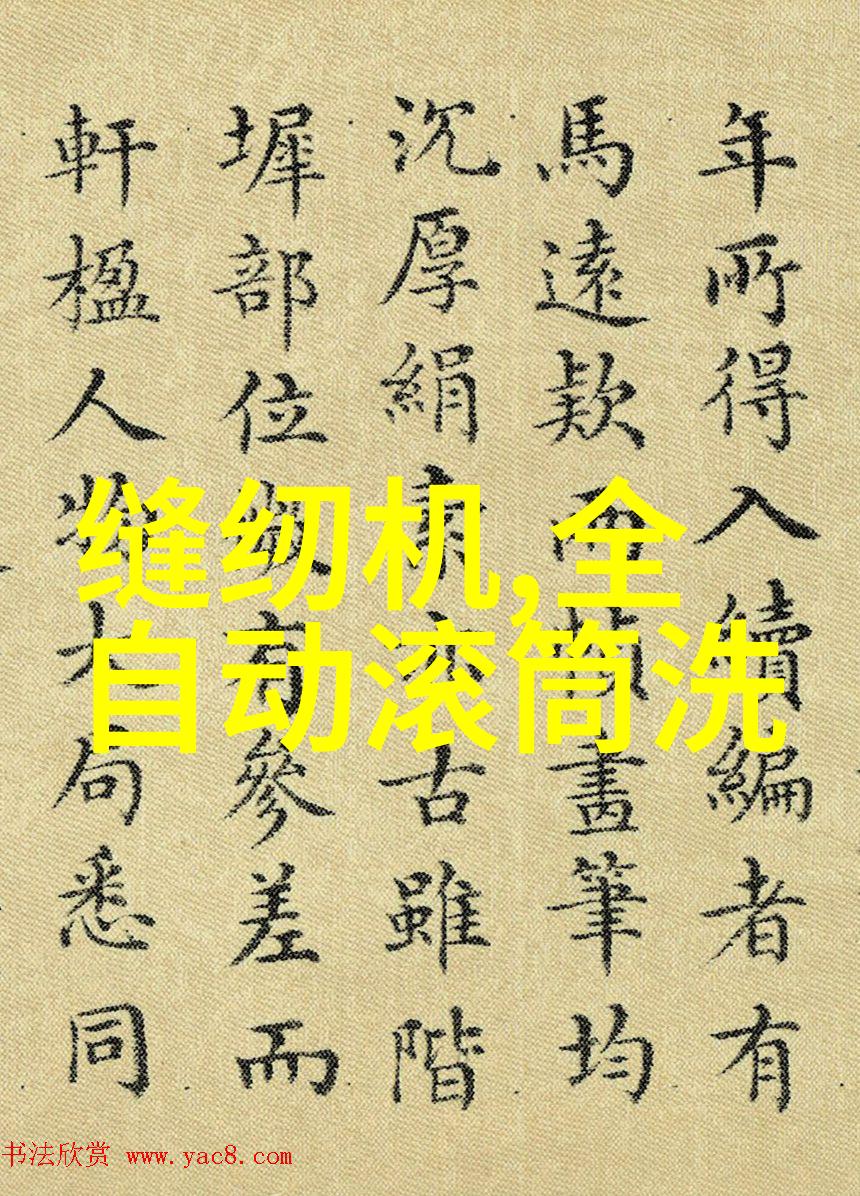 年所得入續編者有
馬遠欵而幀畫筆均
沉厚絹素亦古雖階
墀部位微有參差而
軒楹人物大悉同
缝纫机,全
自动滚筒洗
书法欣赏 www.yac8.com